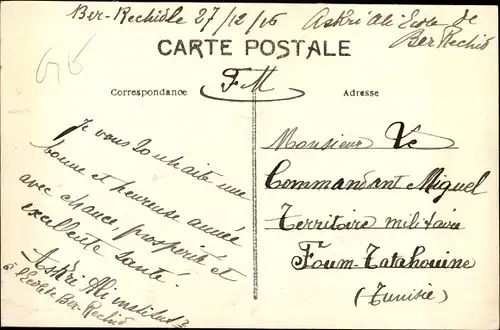 Ber-Rechid le 27/12/16
Askri Ali Ecole de
Ber Rechid
CARTE POSTALE
FM
Correspondance
Adresse
Je vous souhaite une
bonne et heureuse année
avec chance, prospérité et
excellente santé.
Askri Ali
à l'Ecole de Ber-Rechid
Monsieur Le
Commandant Miquel
Territoire militaire
Foum-Tatahouine
(Tunisie)